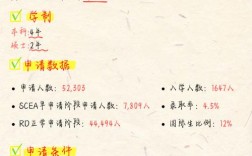 学制
本科：4年
硕士：2年
申请数据
• 申请人数：52,303
• 入学人数：1647人
• SCEA早申请阶段申请人数：7,809人
• 录取率：4.5%
• RD正常申请阶段：44,494人
• 国际生比例：12%
申请条件